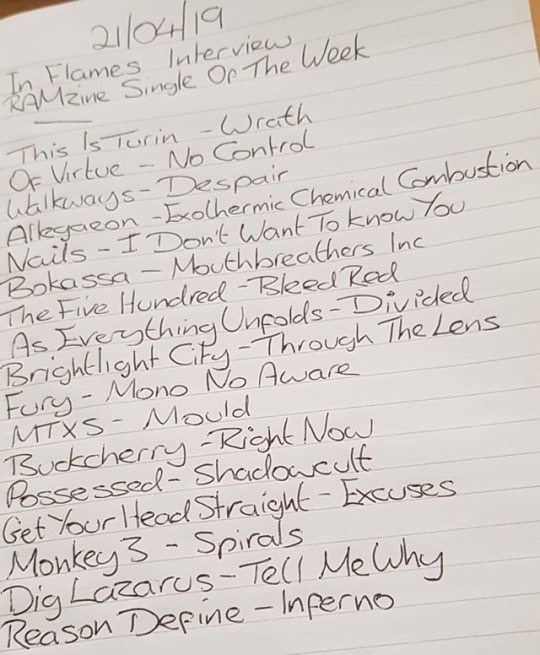 21/04/19
In Flames Interview
RAMzine Single Of The Week
This Is Turin - Wrath
Of Virtue - No Control
Walkways - Despair
Allegaeon - Exothermic Chemical Combustion
Nails - I Don't Want To Know You
Bokassa - Mouthbreathers Inc
The Five Hundred - Bleed Red
As Everything Unfolds - Divided
Brightlight City - Through The Lens
Fury - Mono No Aware
MTXS - Mould
Buckcherry - Right Now
Possessed - Shadowcult
Get Your Head Straight - Excuses
Monkey3 - Spirals
Dig Lazarus - Tell Me Why
Reason Define - Inferno